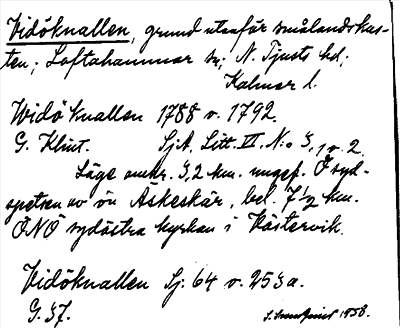 Vidöknallen, grund utanför smålandskus-
ten; Loftahammar sn; N. Tjusts hd;
Kalmar l.
Widö knallen 1788 o. 1792.
G. Klint. SjA. Litt. VI. N:o 3, 1 o. 2.
Läge omkr. 3,2 km. ungef. Ö syd-
spetsen av ön Äskeskär, bel. 7 1/2 km.
ÖNÖ sydöstra kyrkan i Västervik.
Vidöknallen Sj. 64 o. 253a.
G. 37.
1958.